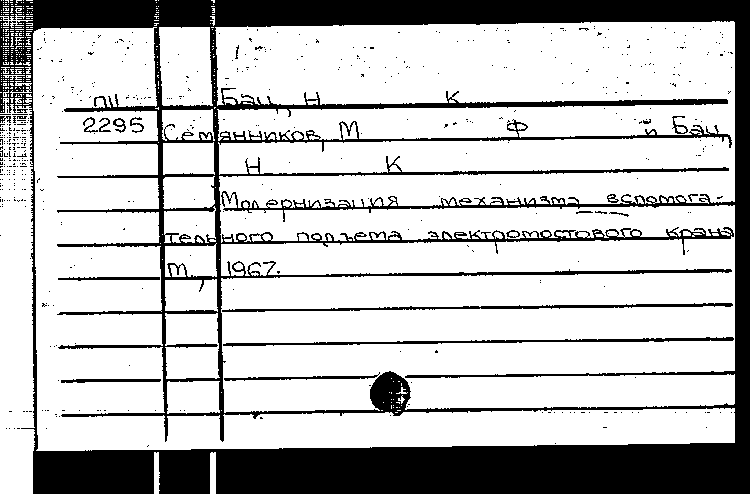 ПII Бац, Н К
2295 Семянников, М Ф и Бац,
Н К
Модернизация механизма вспомога-
тельного подъема электромостового крана
М., 1967.